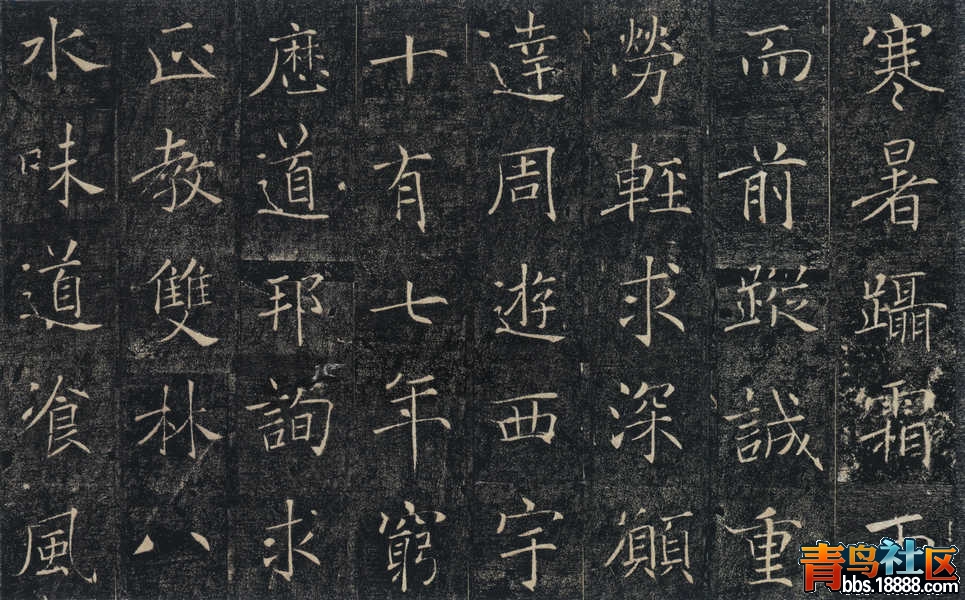 寒暑躡霜雨
而前蹤誠重
勞輕求深願
達周遊西宇
十有七年窮
歷道邦詢求
正教雙林八
水味道飡風
青鸟社区
bbs.18888.com